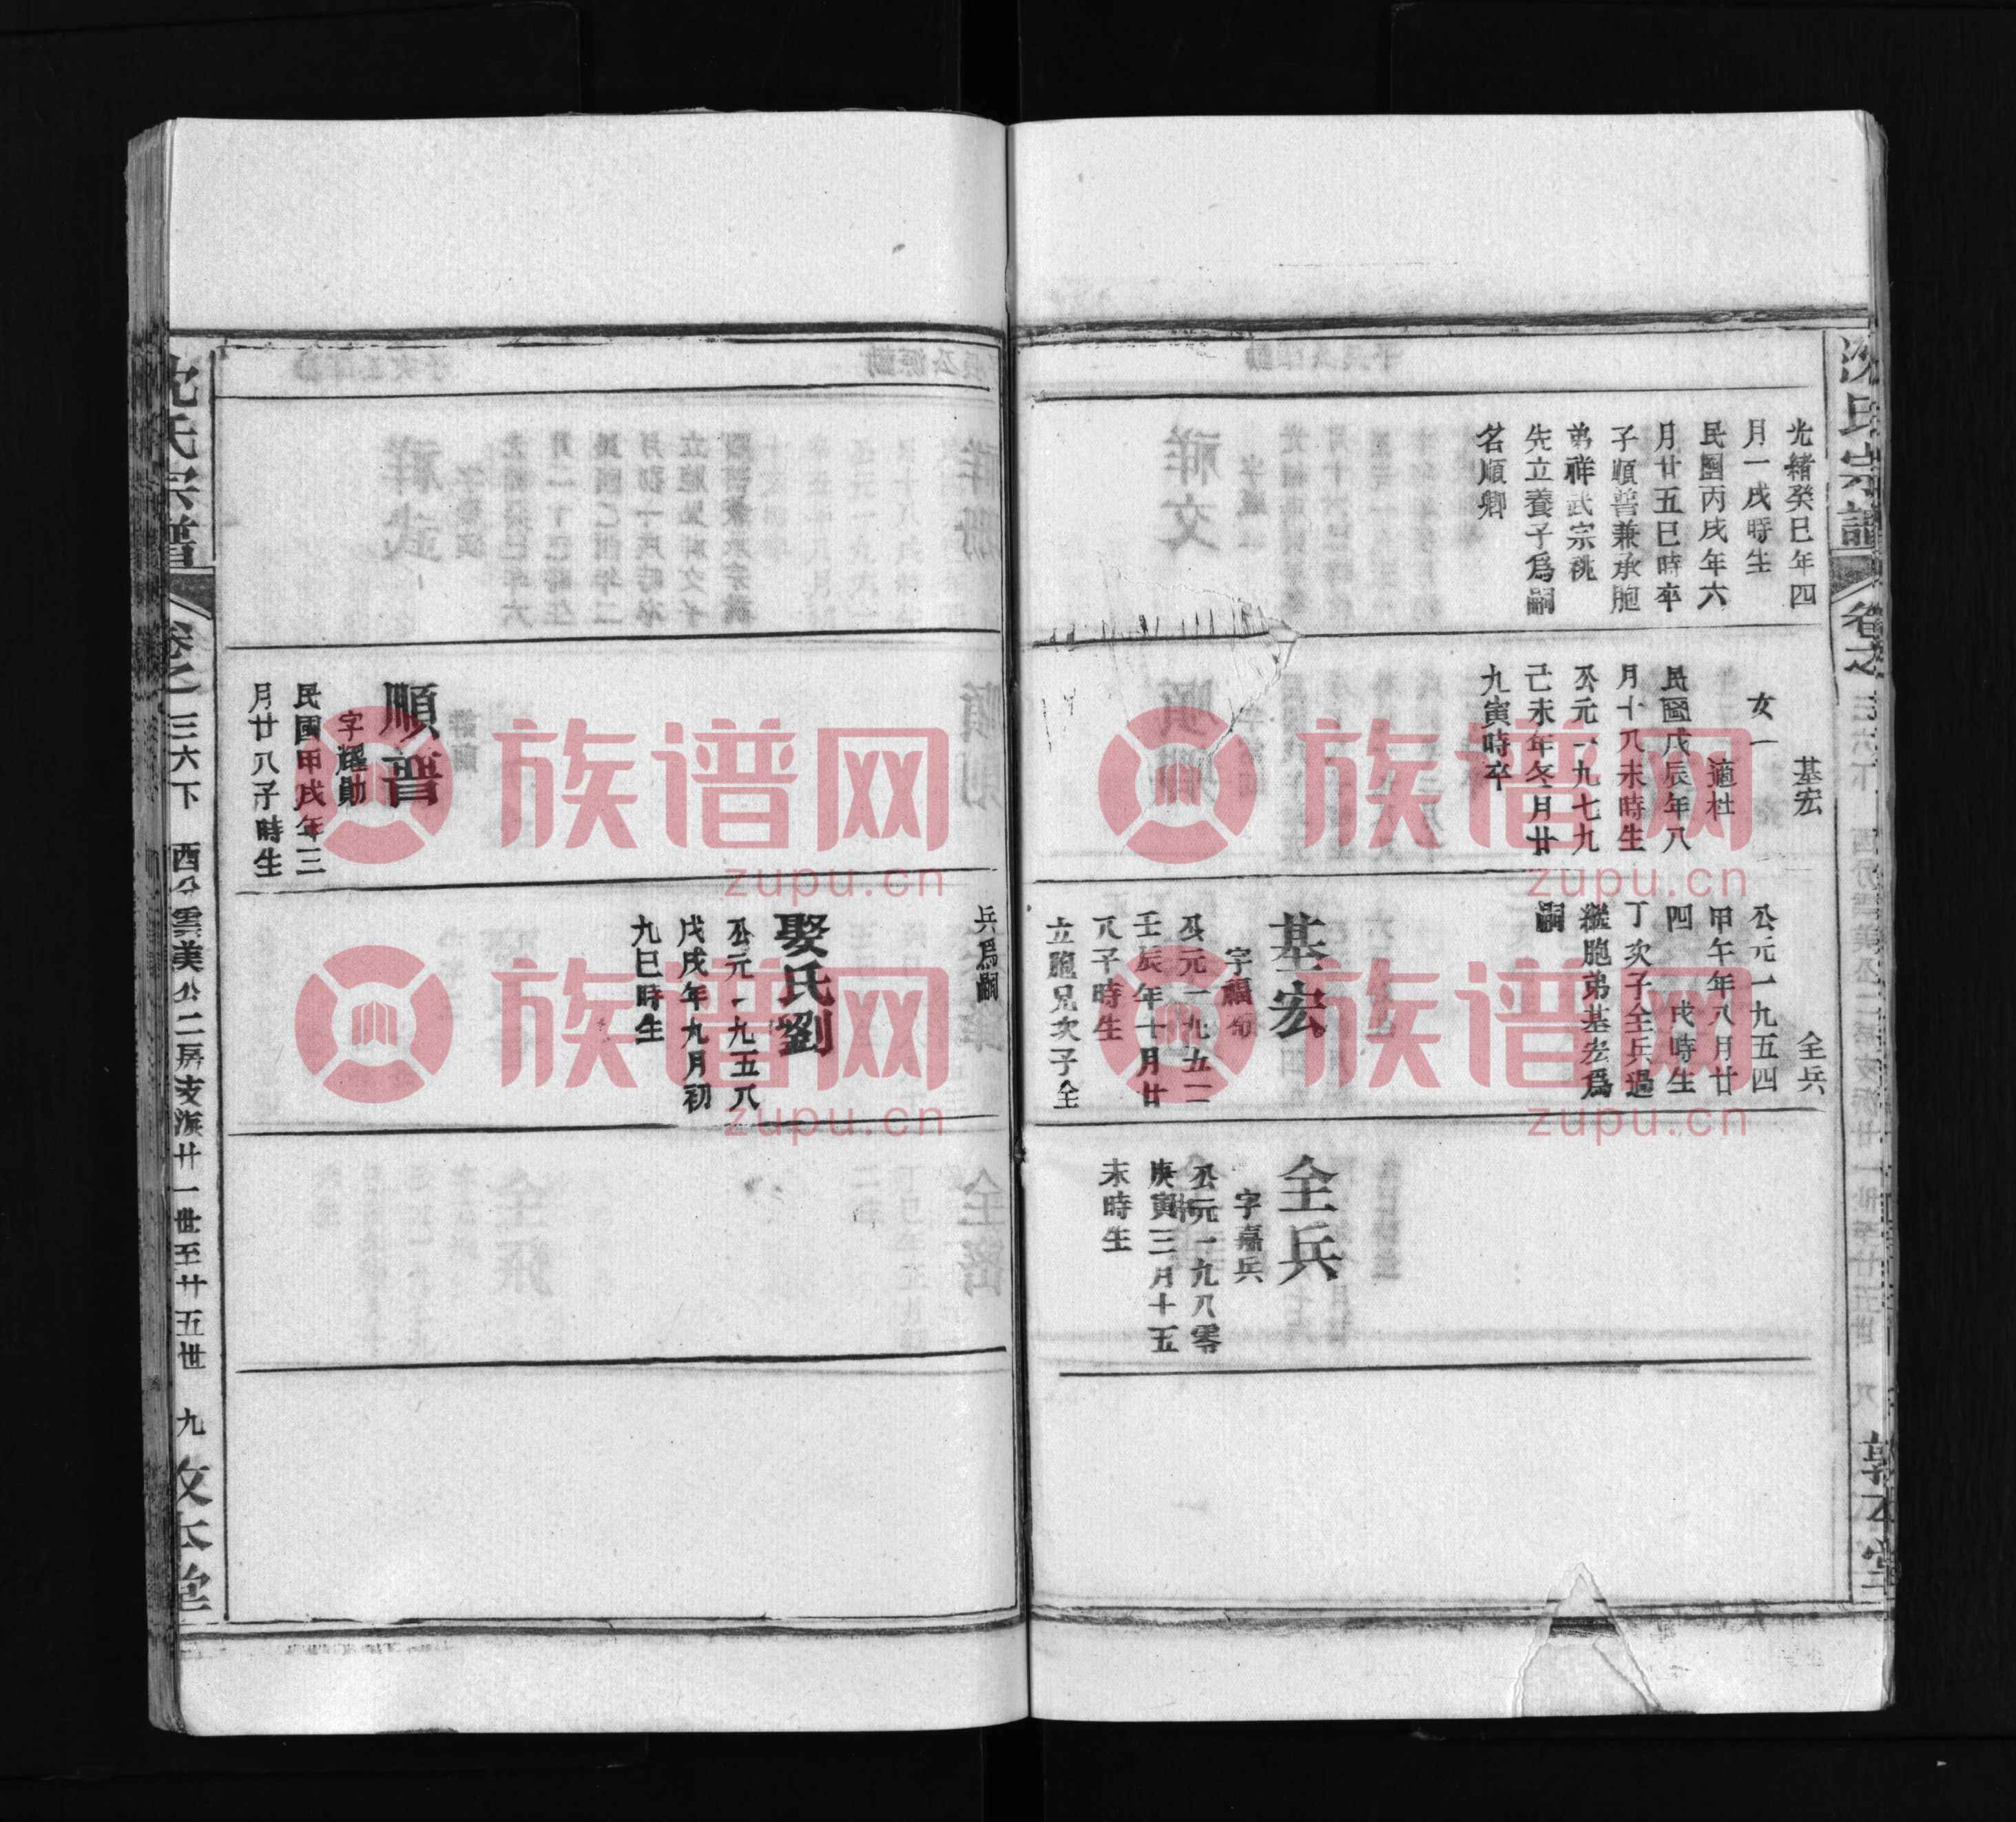 沈氏宗譜
卷之
三六下
敦本堂
光緒癸巳年四
月一戌時生
民國丙戌年六
月廿五巳時卒
子順普兼承胞
弟祥武宗祧
先立養子爲嗣
名順卿
基宏
女一
適杜
民國戊辰年八
月十八未時生
公元一九七九
己未年冬月廿
九寅時卒
全兵
公元一九五四
甲午年八月廿
四 戌時生
丁次子全兵過
繼胞弟基宏爲
嗣
基宏
公元一九五二
壬辰年十月廿
八子時生
立胞兄次子全
全兵
字嘉兵
公元一九八零
庚寅三月十五
未時生
兵爲嗣
娶氏劉
公元一九五八
戊戌年九月初
九巳時生
順普
字耀勛
民國甲戌年三
月廿八子時生
沈氏宗譜
卷之
三六下
西分雲美公二房支派廿一世至廿五世
九
敦本堂
族谱网
zupu.cn
族谱网
zupu.cn
族谱网
zupu.cn
族谱网
zupu.cn